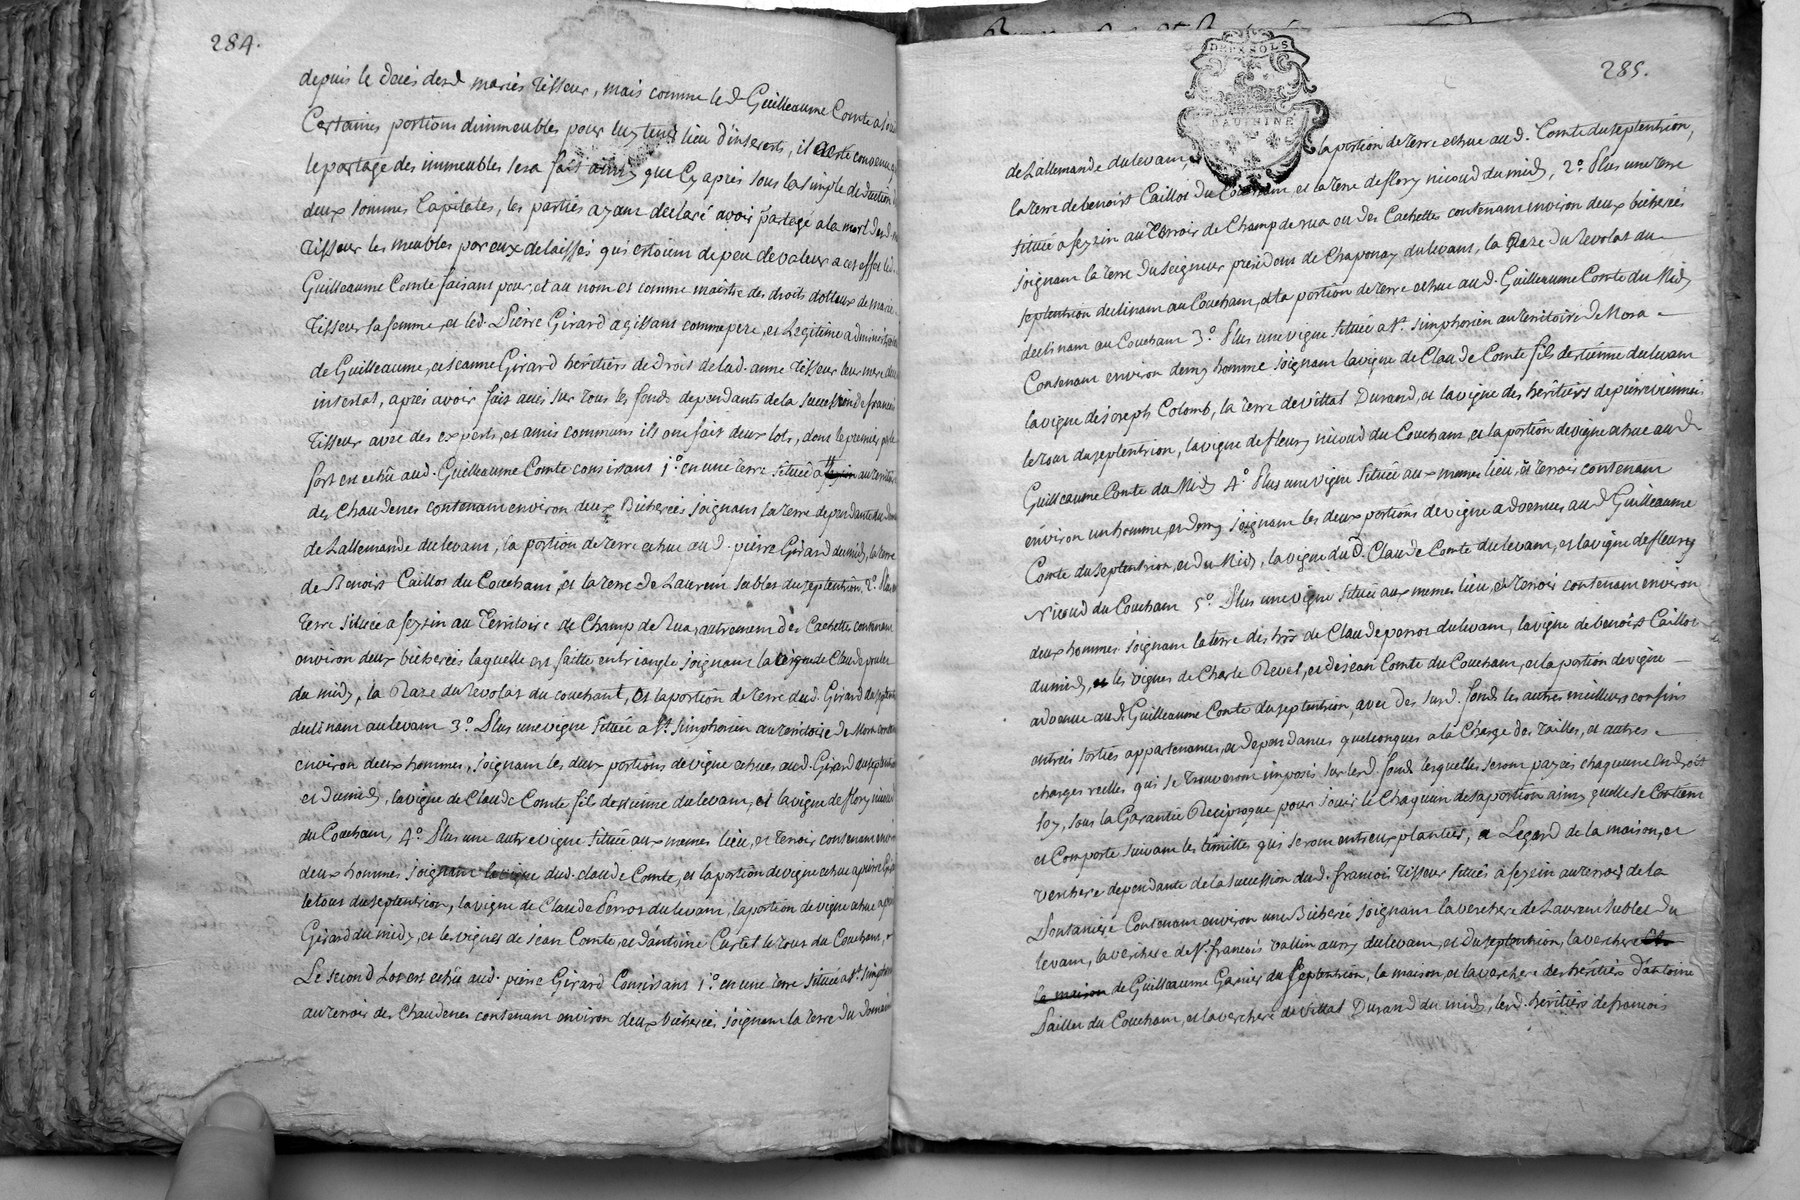 284.
depuis le deces desd mariés tisseur, mais comme led Guilleaume Comte a
Certaines portions dimmeubles pour luy tenir lieu d'interests, il a esté convenu
le partage des immeubles sera fait ainsy que Cy apres sous la simple deduction
deux sommes Capitales, les parties ayant declaré avoir partagé a la mort desd
tisseur les meubles par eux delaissés qui estoient de peu de valeur a cet effet led.
Guilleaume Comte faisant pour, et au nom et comme maistre des droits dottaux de marie
tisseur sa femme, et led. Pierre Girard agissant comme pere, et Legitime administrateur
de Guilleaume, et Jeanne Girard heritiers de droit de lad. anne tisseur leur mere
intestat, apres avoir fait avis sur tous les fonds dependants de la succession de francois
tisseur avec des experts, et amis communs ils ont fait deux lots, dont le premier par le
sort est echû aud. Guilleaume Comte consistant 1.° en une terre située a au territoire
des Chaudenes contenant environ deux Bicherées joignant la terre dependante du
de Lallemande du levant, la portion de terre echue aud. pierre Girard du midy, la terre
de Benoist Caillot du Couchant, et la terre de Laurent Sublet du septentrion. 2.° Plus
terre sittuée a feyzin au Territoire de Champ de rua, autrement des Cachettes contenant
environ deux bicherées laquelle est faitte en triangle joignant la vigne de Claude
du midy, la Raze du revolat du couchant, et la portion de terre dud. Girard du septentrion
declinant au levant 3.° Plus une vigne située a St. Simphorien au territoire de Mora contenant
environ deux hommes, joignant les deux portions de vigne echues aud. Girard du septentrion
et du midy, la vigne de Claude Comte fils d'estienne du levant, et la vigne de flory nicoud
du Couchant, 4.° Plus une autre vigne située aux memes lieu, et terroir contenant environ
deux hommes joignant la vigne dud. claude Comte, et la portion de vigne echue a pierre
le tout du septentrion, la vigne de Claude Perrot du levant, la portion de vigne echue a
Girard du midy, et les vignes de jean Comte, et d'antoine Curtet le tout du Couchant,
Le second Lot est echû aud. pierre Girard Consistant 1.° en une terre située a St. Simphorien
au terroir des Chaudenes contenant environ deux bicherées joignant la terre du Domaine
285.
DEUX SOLS
DAUPHINÉ
de Lallemande du levant, la portion de terre echue aud. Comte du septentrion,
la terre de benoist Caillot du Couchant et la terre de flory nicoud du midy, 2.° Plus une terre
située a feyzin au Terroir de Champ de rua ou des Cachettes contenant environ deux bicherées
joignant la terre du Seigneur president de Chaponay du levant, la Raze du revolat du
septentrion declinant au Couchant, et la portion de terre echue aud. Guilleaume Comte du Midy
declinant au Couchant 3.° Plus une vigne située a St. Simphorien au territoire de Mora
Contenant environ demy homme joignant la vigne de Claude Comte fils d'estienne du levant
la vigne de joseph Colomb, la terre de vittal Durand, et la vigne des heritiers de pierre viennois
le tout du septentrion, la vigne de fleury nicoud du Couchant et la portion de vigne echue aud.
Guilleaume Comte du Midy 4.° Plus une vigne située aux memes lieu, et terroir contenant
environ un homme, et demy joignant les deux portions de vigne advenues aud Guilleaume
Comte du septentrion, et du Midy, la vigne dud. Claude Comte du levant, et la vigne de fleury
Nicoud du Couchant 5.° Plus une vigne située aux memes lieu, et terroir contenant environ
deux hommes joignant la terre des hrs de Claude perrot du levant, la vigne de benoist Caillot
du midy, les vignes de Charle Revel, et de jean Comte du Couchant, et la portion de vigne
advenue aud. Guilleaume Comte du septentrion, avec desd. fonds les autres meilleurs confins
entrées sorties appartenances, et dependances quelconques a la Charge des tailles, et autres
charges reelles qui se trouveront imposés sur lesd. fonds lesquelles seront payées chaqu'une endroit
soy, sous la Garantie Reciproque pour jouir le Chaqu'un de sa portion ainsy quelle se Contient
et Comporte suivant les limittes qui seront entreux plantées, a Legard de la maison, et
verchere dependante de la succession dud. francois tisseur situés a feyzin au terroir de la
Contenant environ une Bicherée joignant la verchere de Laurent Sublet du
levant, la verchere de Sr. francois Vallin du levant, et du septentrion, la verchere
la maison de Guilleaume Garnier du septentrion, la maison, et la verchere des héritiers d'antoine
Paillet du Couchant, et la verchere de vittal Durand du midy, lesd. héritiers de francois